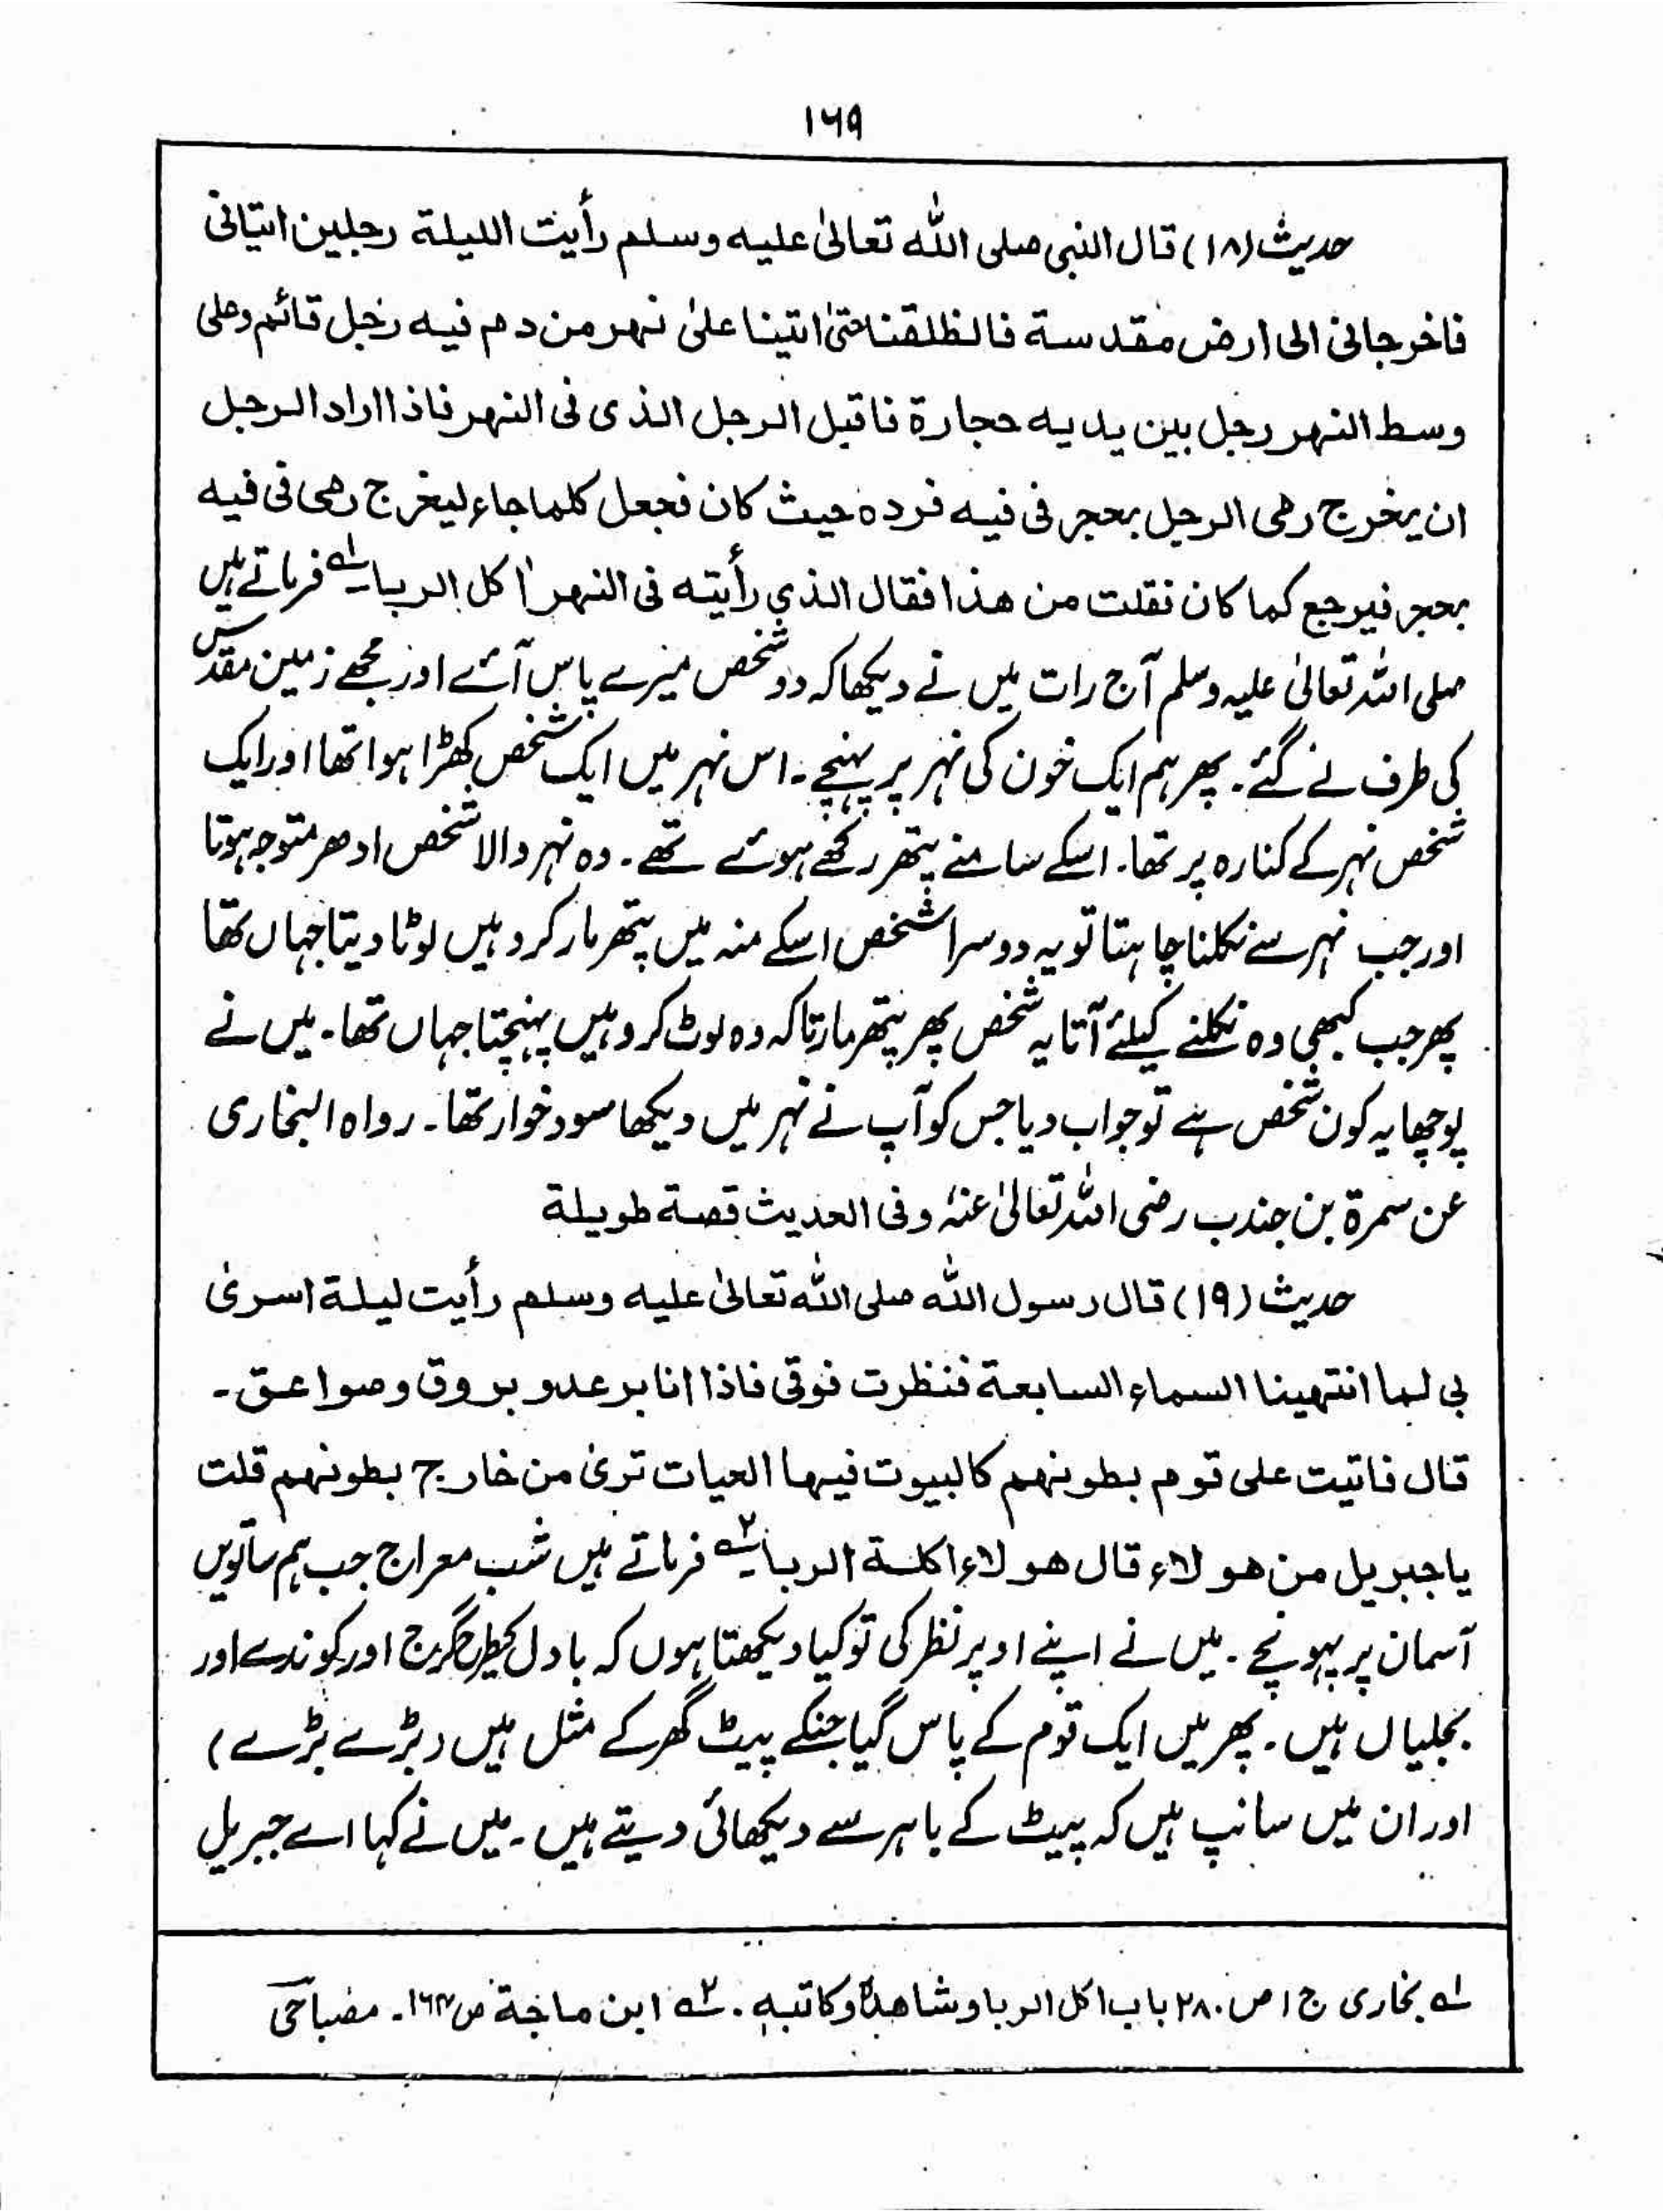 ۱۶۹
حدیث (۱۸) قال النبی صلی اللہ تعالیٰ علیہ وسلم رأیت اللیلۃ رجلین اتیانی
فاخرجانی الی ارض مقدسۃ فانطلقنا حتیٰ اتینا علیٰ نھر من دم فیہ رجل قائم وعلی
وسط النھر رجل بین یدیہ حجارۃ فاقبل الرجل الذی فی النھر فاذا اراد الرجل
ان یخرج رمی الرجل بحجر فی فیہ فردہ حیث کان فجعل کلما جاء لیخرج رمی فی فیہ
بحجر فیرجع کما کان فقلت من ھذا فقال الذی رأیتہ فی النھر اٰکل الربا ۱؎ فرماتے ہیں
صلی اللہ تعالیٰ علیہ وسلم آج رات میں نے دیکھا کہ دو شخص میرے پاس آئے اور مجھے زمین مقدس
کی طرف لے گئے۔ پھر ہم ایک خون کی نہر پر پہنچے۔ اس نہر میں ایک شخص کھڑا ہوا تھا اور ایک
شخص نہر کے کنارہ پر تھا۔ اسکے سامنے پتھر رکھے ہوئے تھے۔ وہ نہر والا شخص ادھر متوجہ ہوتا
اور جب نہر سے نکلنا چاہتا تو یہ دوسرا شخص اسکے منہ میں پتھر مار کر وہیں لوٹا دیتا جہاں تھا
پھر جب کبھی وہ نکلنے کیلئے آتا یہ شخص پھر پتھر مارتا کہ وہ لوٹ کر وہیں پہنچتا جہاں تھا۔ میں نے
پوچھا یہ کون شخص ہے تو جواب دیا جس کو آپ نے نہر میں دیکھا سود خوار تھا۔ رواہ البخاری
عن سمرۃ بن جندب رضی اللہ تعالیٰ عنہٗ وفی الحدیث قصۃ طویلۃ
حدیث (۱۹) قال رسول اللہ صلی اللہ تعالیٰ علیہ وسلم رأیت لیلۃ اسریٰ
بی لما انتھینا السماء السابعۃ فنظرت فوقی فاذا انا برعد و بروق و صواعق۔
قال فاتیت علی قوم بطونھم کالبیوت فیھا الحیات تریٰ من خارج بطونھم قلت
یا جبریل من ھولاء قال ھولاء اکلۃ الربا ۲؎ فرماتے ہیں شب معراج جب ہم ساتویں
آسمان پر پہونچے۔ میں نے اپنے اوپر نظر کی تو کیا دیکھتا ہوں کہ بادل کیطرح گرج اور کوندے اور
بجلیاں ہیں۔ پھر میں ایک قوم کے پاس گیا جنکے پیٹ گھر کے مثل ہیں (بڑے بڑے)
اور ان میں سانپ ہیں کہ پیٹ کے باہر سے دیکھائی دیتے ہیں۔ میں نے کہا اے جبریل
۱؎ بخاری ج۱ ص ۲۸۰ باب اکل الربا و شاھدہٗ و کاتبہٖ۔ ۲؎ ابن ماجۃ ص ۱۶۴۔ مصباحی